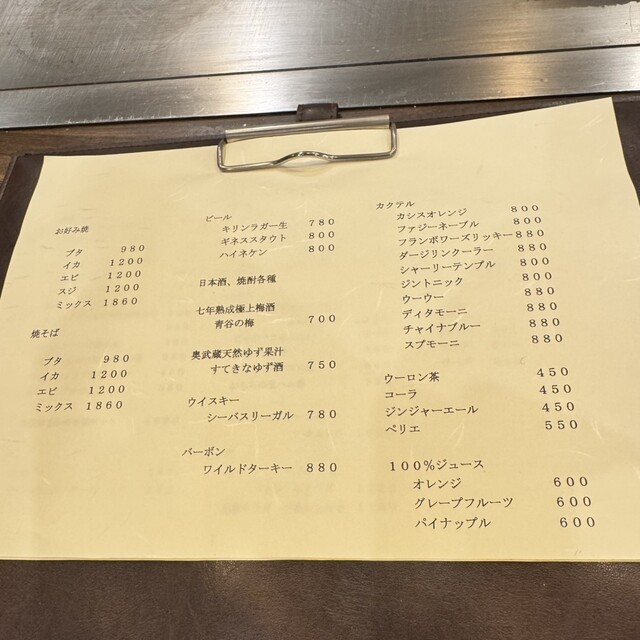 お好み焼
ブタ 980
イカ 1200
エビ 1200
スジ 1200
ミックス 1860
焼そば
ブタ 980
イカ 1200
エビ 1200
ミックス 1860
ビール
キリンラガー生 780
ギネススタウト 800
ハイネケン 800
日本酒、焼酎各種
七年熟成極上梅酒
青谷の梅 700
奥武蔵天然ゆず果汁
すてきなゆず酒 750
ウイスキー
シーバスリーガル 780
バーボン
ワイルドターキー 880
カクテル
カシスオレンジ 800
ファジーネーブル 800
フランボワーズリッキー 880
ダージリンクーラー 880
シャーリーテンプル 800
ジントニック 880
ウーウー 880
ディタモーニ 880
チャイナブルー 880
スプモーニ 880
ウーロン茶 450
コーラ 450
ジンジャーエール 450
ペリエ 550
100%ジュース
オレンジ 600
グレープフルーツ 600
パイナップル 600